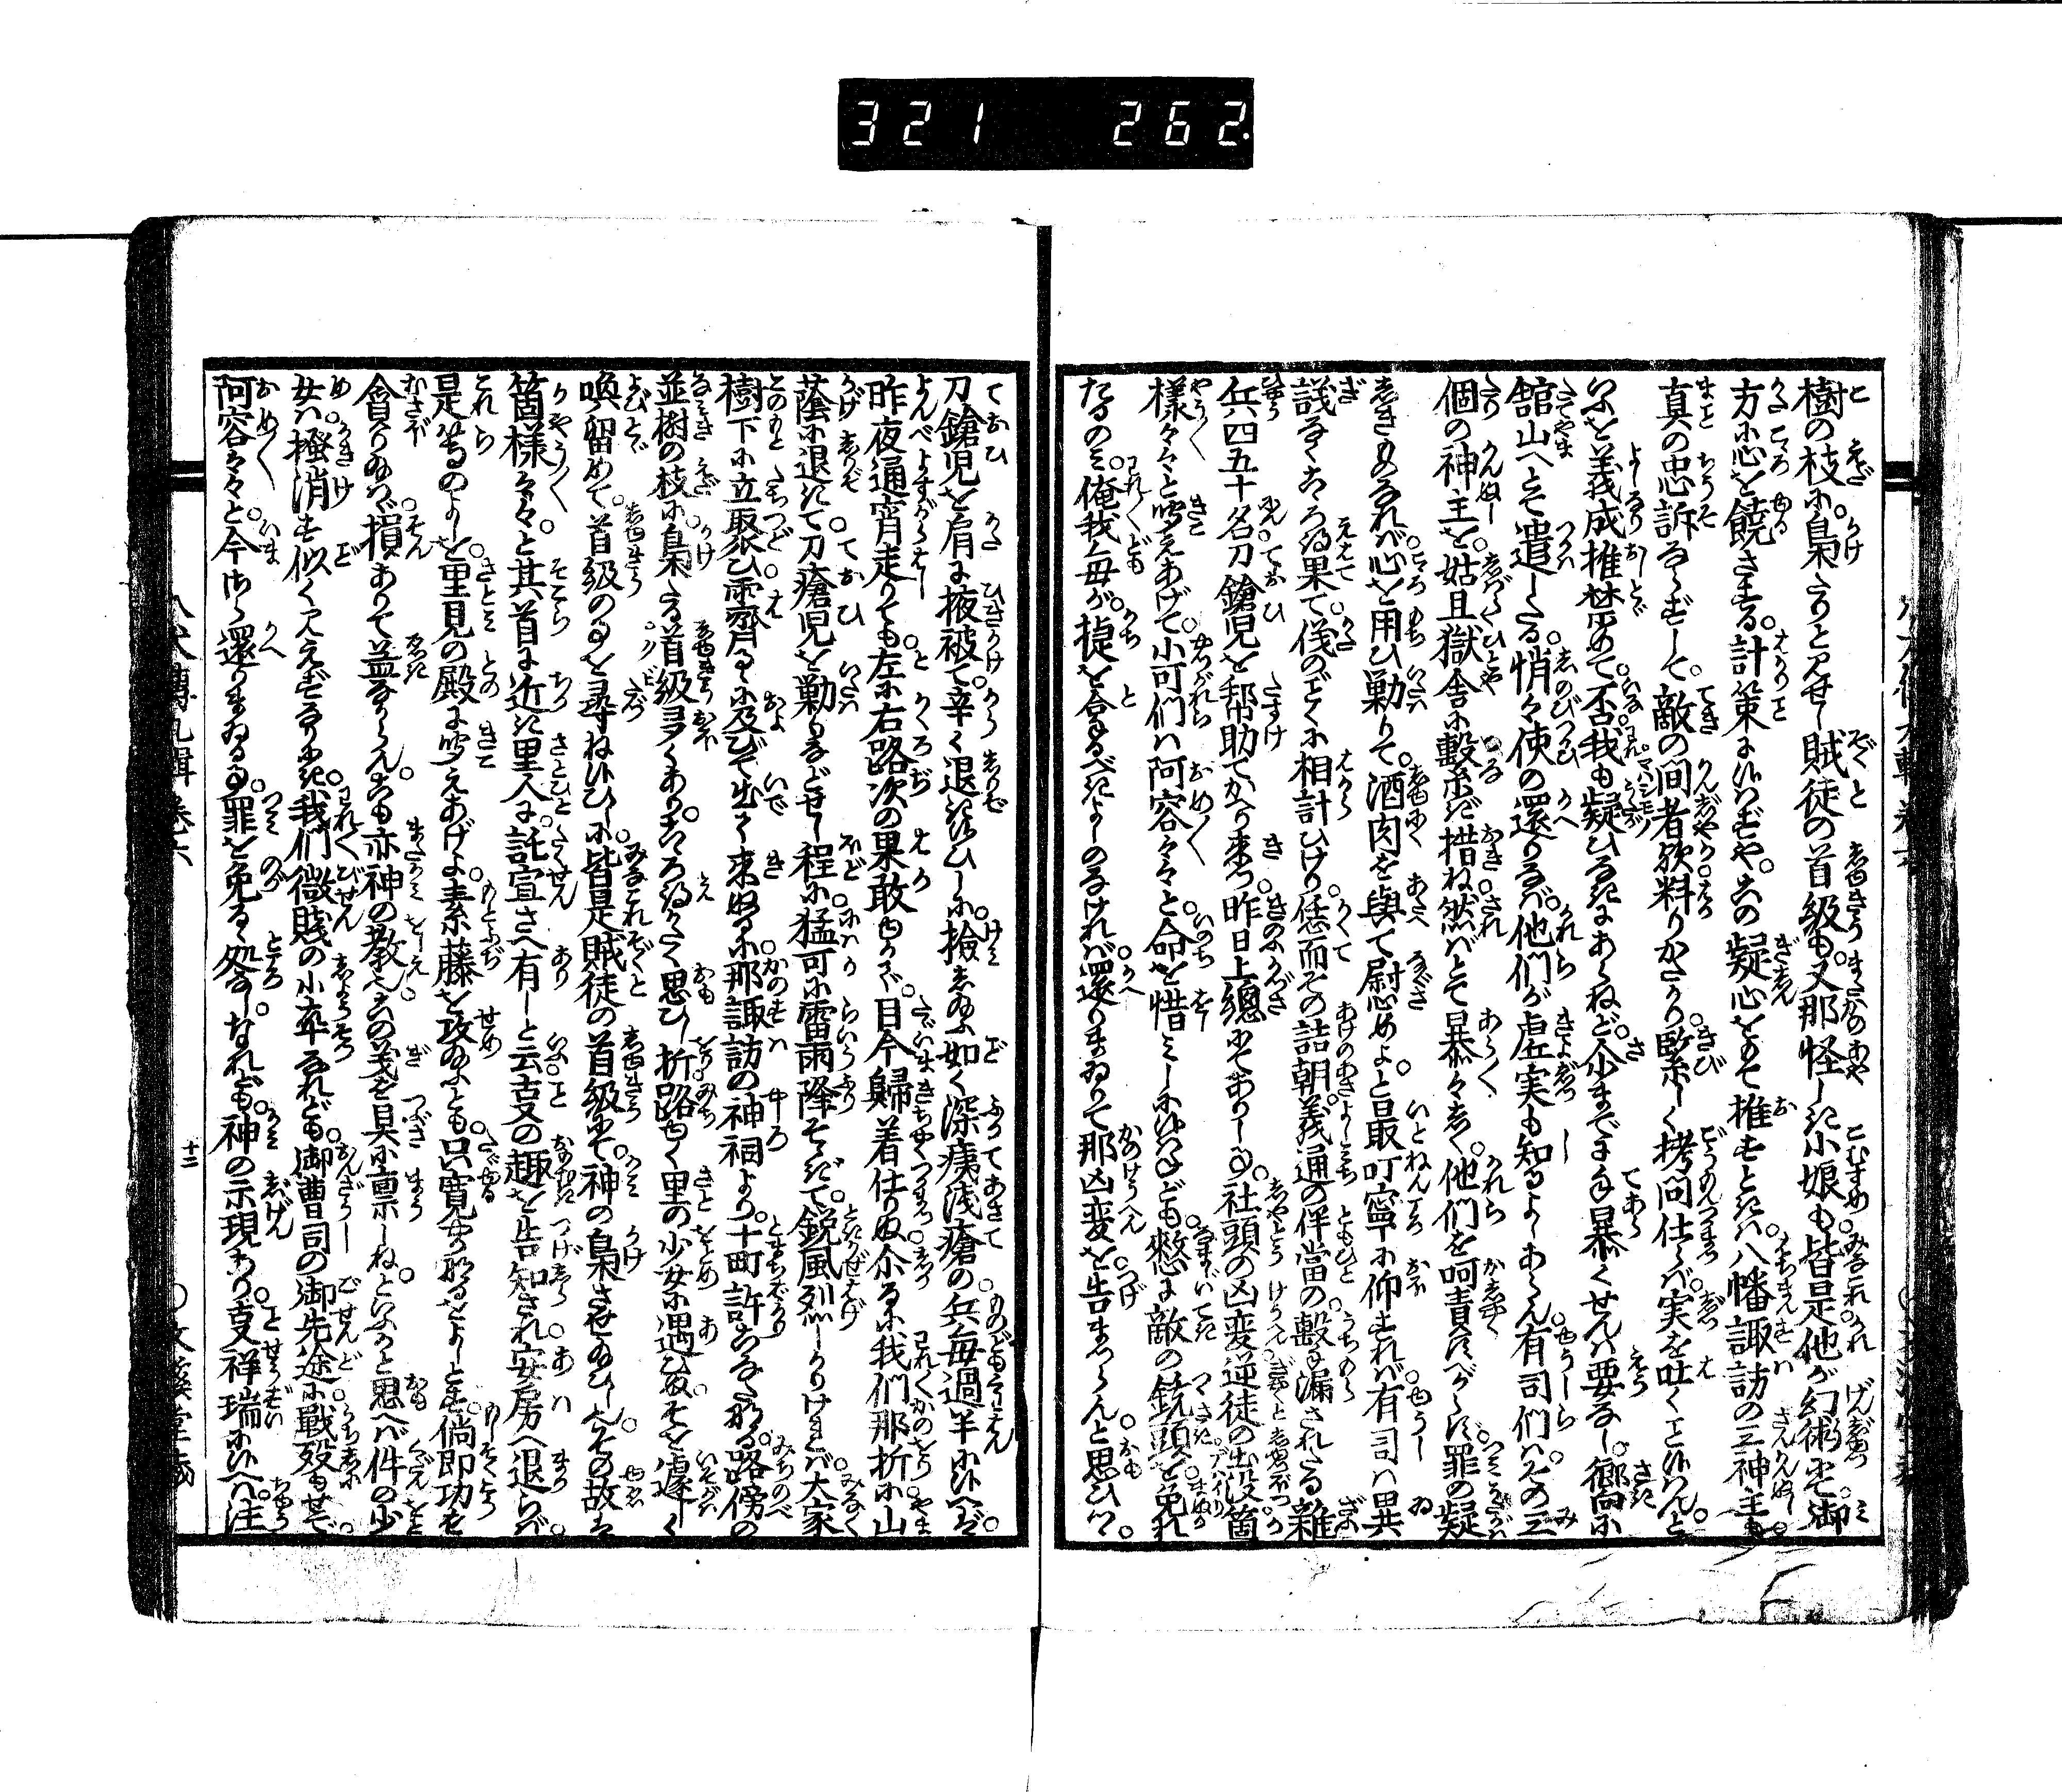 321 262
樹の枝に梟たりと見せし賊徒の首級も又那怪しき小娘も皆是他が幻術にて御
方に心を饒さする計策に候はずやこの疑心をもて推すときは八幡諏訪の三神主も
真の忠訴ならずして敵の間者欤料りかたかり緊しく拷問仕らば実を吐くこと候はんと
いふを義成推禁めて否我も疑ひなきにあらねど尓まで手暴くせんは要なし嚮に
館山へとて遣したる悄々使の還りなば他們が虚実も知るよしあらん有司們はこの三
個の神主を姑且獄舎に繋ぎ措ね然ばとて暴々しく他們を呵責すべからず罪の疑
しきものなれば心を用ひ勦りて酒肉を與て慰めよと最叮寧に仰すれば有司は異
議なくこころ得果て儀のごとくに相計ひけり恁而その詰朝義通の伴當の撃漏されたる雑
兵四五十名刀鎗児を帮助てかへり来つ昨日上總にてありし事社頭の凶変逆徒の出没箇
様々々と聞えあげて小可們は阿容々々と命を惜みしに候はねども憖に敵の銃頭を免れ
たるのみ俺我毎が掟を合るべきよしのなければ還りまゐりて那凶変を告まつらんと思ひつゝ
刀鎗児を肩に掖被て辛く退き候ひしに撿しゑふ如く深痍浅瘡の兵毎過半に候へば
昨夜通宵走りても左に右路次の果敢ゆかで目今歸着仕りぬ尓るに我們那折に山
蔭に退きて刀瘡児を勦りなどせし程に猛可に雷雨降そゝぎて鋭風烈しかりければ大家
樹下に立聚ひ雨霽るゝに及びて出て来ぬるに那諏訪の神祠より十町許こなたなる路傍の
並樹の枝に梟たる首級多くありこころ得がたく思ひし折路ゆく里の少女に遇ひぬそを遽しく
喚留めて首級の事を尋ね候ひしに皆是賊徒の首級にて神の梟させ給ひしなりその故は
箇様々々と其首に近き里人に託宣さへ有しと云云の趣を告知され安房へ退らば
是等のよしを里見の殿に聞えあげよ素藤を攻給ふとも只寛やかなるをよしとす倘即功を
貪り給はゞ損ありて益なからんこも亦神の教えこの義を具に稟しねといふかと思へば件の少
女は掻消す似く見えずなりにき我們微賤の小卒なれども御曹司の御先途に戦歿もせで
阿容々々と今さら還りまゐる事罪を免るゝ処なしなれども神の示現あり又祥瑞に候へば注
八犬傳九輯巻六
十二